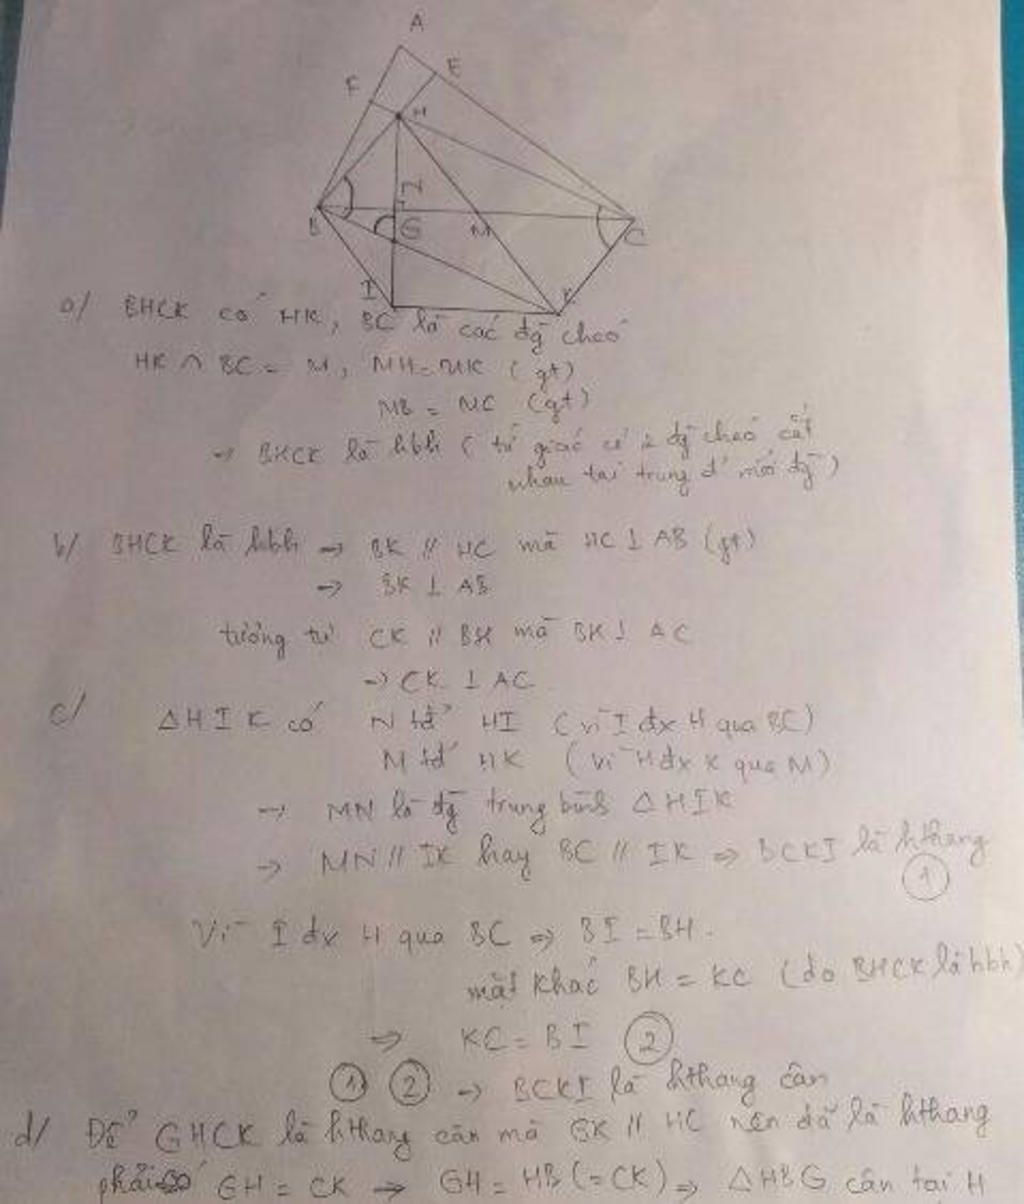 A
E
F
H
N
B
G
M
C
I
K
a/ BHCK có HK, BC là các đg chéo
HK ∩ BC = M, MH = MK (gt)
MB = MC (gt)
→ BHCK là hbh (tứ giác có 2 đg chéo cắt
nhau tại trung đ' mỗi đg)
b/ BHCK là hbh → BK // HC mà HC ⊥ AB (gt)
→ BK ⊥ AB
tương tự CK // BH mà BH ⊥ AC
→ CK ⊥ AC
c/ ΔHIK có N tđ' HI (vì I đx H qua BC)
M tđ' HK (vì H đx K qua M)
→ MN là đg trung bình ΔHIK
→ MN // IK hay BC // IK ⇒ BCKI là hthang
①
Vì I đx H qua BC ⇒ BI = BH.
mặt khác BH = KC (do BHCK là hbh)
⇒ KC = BI ②
① ② → BCKI là hthang cân
d/ Để GHCK là hthang cân mà GK // HC nên đã là hthang
phải có GH = CK → GH = HB (= CK) ⇒ ΔHBG cân tại H